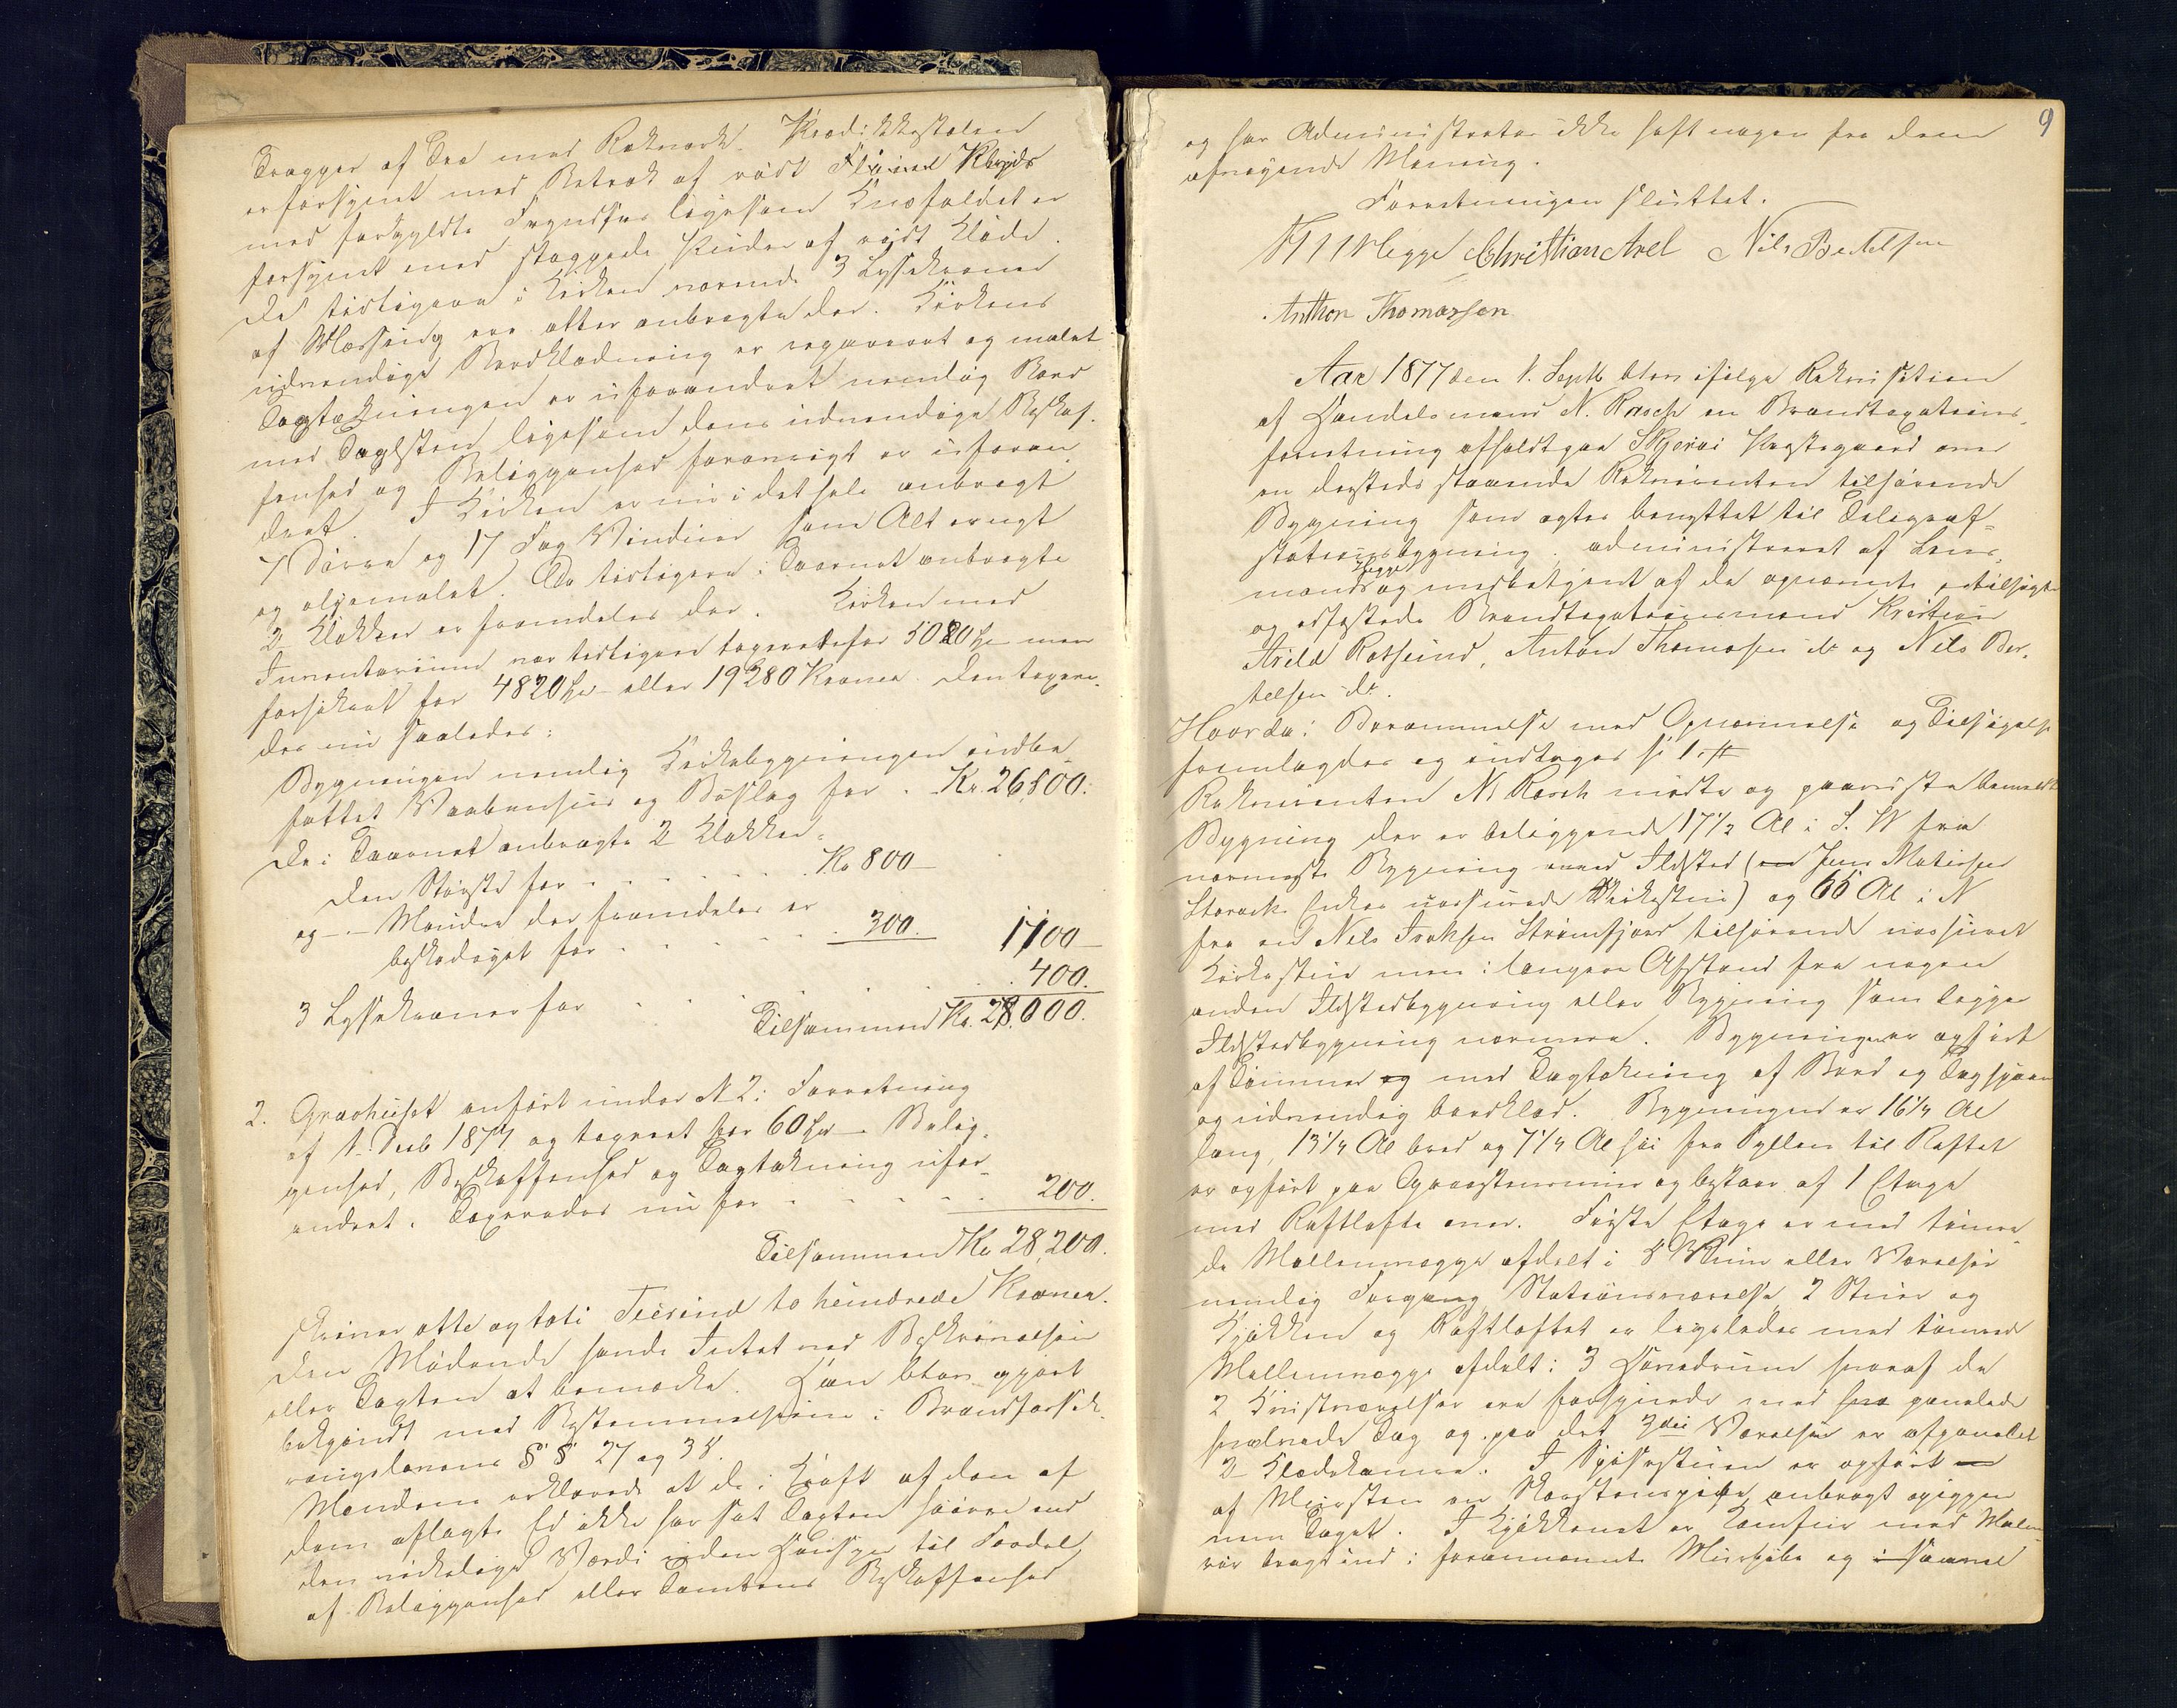 Trapper af Træ med Rækværk. Prædikestolen
er forsynet med Betræk af rødt Kløde
med forgyldte Fryndser ligesom Knæfaldet er
forsynet med stoppede Puder af rødt Klæde.
De tidligere i Kirken værende 3 Lysekroner
af Messing ere atter anbragte der. Kirkens
udvendige Bordklædning er repareret og malet
Tagtækningen er uforandret nemlig Bord
med Taglsten ligesom dens udvendige Beskaf-
fenhed og Beliggenhed forøvrigt er uforan-
dret. I Kirken er nu i det hele anbragt
7 Døre og 17 Fag Vinduer som Alt er nyt
og oljemalet. De tidligere i Taarnet anbragte
2 Klokker er fremdeles der. Kirken med
Inventarium var tidligere taxeret for 5020 Spd men
forsikret for 4820 Spd eller 19280 Kroner. Den taxere-
des nu saaledes:
Bygningen nemlig Kirkebygningen indbe-
fattet Vaabenhus og Beslag for . Kr. 26,500.
De i Taarnet anbragte 2 Klokker.
den Største for . . . . . . . Kr 800 –
og – Mindre der fremdeles er
beskadiget for . . . . . 300. 1100 –
3 Lysekroner for . . . . . . . 400.
Tilsammen Kr. 28,000.
2. Gravhuset anført under N 2 i Forretning
af 1. Decb 1877 og taxeret for 60 Spd – Belig-
genhed, Beskaffenhed og Tagtækning ufor-
andret. Taxeredes nu for . . . . . . 200.
Tilsammen Kr 28,200.
skriver otte og toti Tusind to hundrede Kroner.
Den Mødende havde Intet ved Beskrivelsen
eller Taxten at bemærke. Han blev gjort
bekjendt med Bestemmelserne i Brandforsik-
ringslovens § § 27 og 38.
Mændene erklærede at de i Kraft af den af
dem aflagte Ed ikke har sat Taxten høiere end
den virkelige Værdi uden Hensyn til Fordel
af Beliggenhed eller Tomtens Beskaffenhed
9
og har Administrator ikke haft nogen fra dem
afvigende Mening.
Forretningen sluttet.
Hegge Christian Arel Nils Bertelsen
Anthon Thomassen
Aar 1877 den 1. Septb blev ifølge Rekvisition
af Handelsmand N. Rasch en Brandtaxations-
forretning afholdt paa Skjervø Præstegaard over
en dersteds staaende Rekvirenten tilhørende
Bygning som agtes benyttet til Telegraf-
stationsbygning. administreret af Lens-
mand Hegge og medbetjent af de opnævnte, tilsagte
og edfæstede Brandtaxationsmænd Kristian
Arild Rotsund, Anton Thomasen do og Nils Ber-
telsen do.
Hvorda: Berammelse med Opnævnelse og Tilsigelse
fremlagdes og indtages
Rekvirenten N. Rasch mødte og paaviste bemeldte
Bygning der er beliggende 17½ Al i S. V fra
nærmeste Bygning med Ildsted (en Jens Matisen
Storvik Enkes uassurede Kirkestue) og 65 Al i N
fra en Nils Isaksen Strømfjord tilhørende uassuret
Kirkestue men i længere Afstand fra nogen
anden Ildstedbygning eller Bygning som ligger
Ildstedbygning nærmere. Bygningen er opført
af Tømmer og med Tagtækning af Bord og Tagspaan
og udvendig bordklæd. Bygningen er 16¼ Al
lang, 13¼ Al bred og 7¼ Al høi fra Syllen til Raftet
er opført paa Graastensmur og bestaar af 1 Etage
med Raftlofte over. Første Etage er med tømre-
de Mellemvægge afdelt i 5 Rum eller Værelser
nemlig Forgang, Stationsværelse 2 Stuer og
Kjøkken og Raftloftet er ligeledes med tømrede
Mellemvægge afdelt i 3 Hovedrum hvoraf de
2 Kvistværelser ere forsynede med paneled
hvælvede Tag og paa det 3die Værelse er afpanelet
2 Klædekamre. I Spisestuen er opført
af Mursten en Skorstenspibe anbragt igjen-
nem Taget. I Kjøkkenet er Komfur med
rør bragt ind i forannævnte Murpibe og i samme